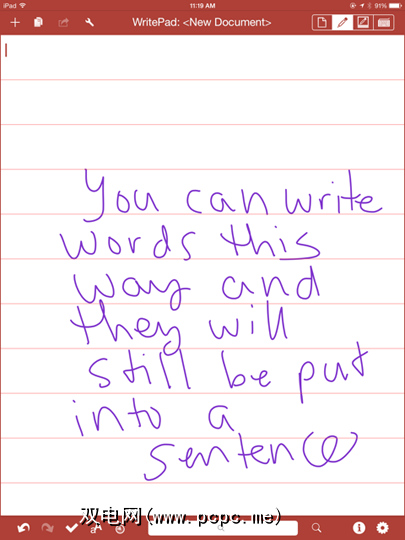 iPad 11:19 AM 91%
WritePad: <New Document>
You can write
words this
way and
they will
still be put
into a
sentence
双电网(www.pcpc.me)